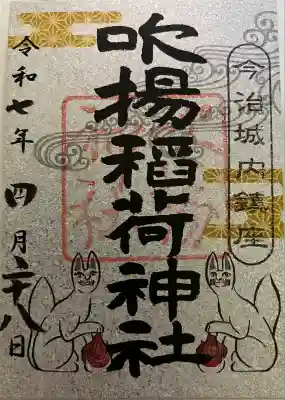 今治城内鎮座
吹揚稲荷神社
令和七年四月二十八日